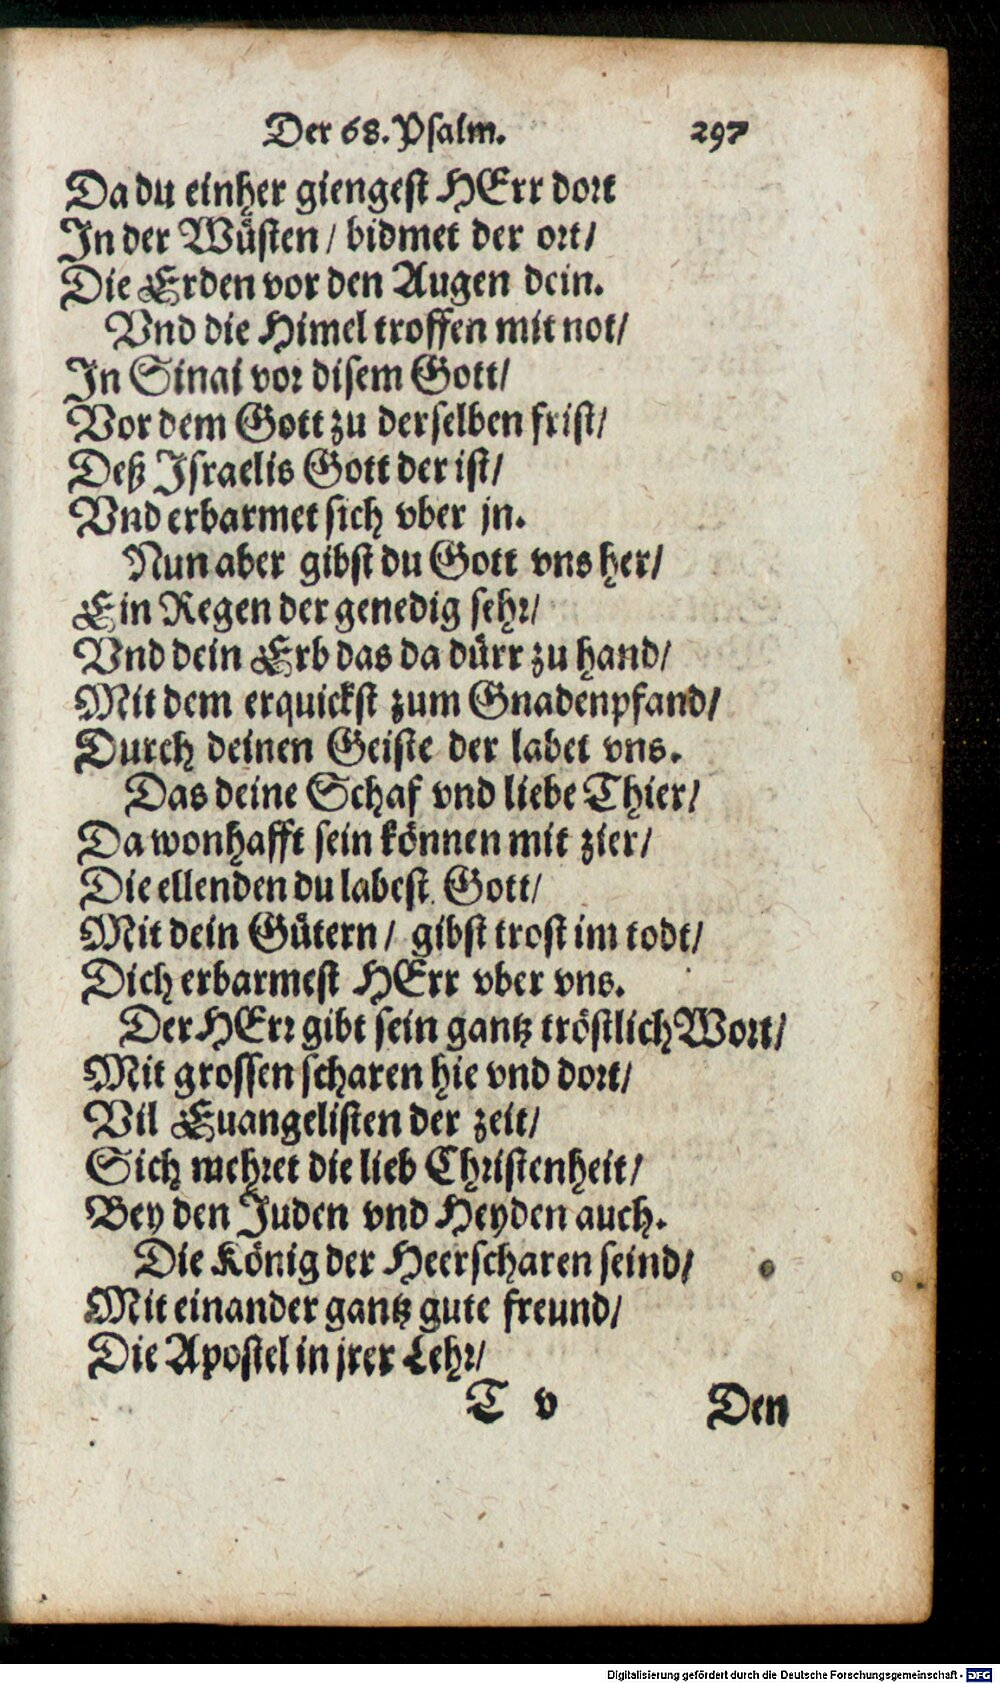 Der 68. Psalm. 297
Da du einher giengest HErr dort
In der Wüsten / bidmet der ort /
Die Erden vor den Augen dein.
Vnd die Himel troffen mit not /
In Sinai vor disem Gott /
Vor dem Gott zu derselben frist /
Deß Israelis Gott der ist /
Vnd erbarmet sich vber jn.
Nun aber gibst du Gott vns her /
Ein Regen der genedig sehr /
Vnd dein Erb das da dürr zu hand /
Mit dem erquickst zum Gnadenpfand /
Durch deinen Geiste der labet vns.
Das deine Schaf vnd liebe Thier /
Da wonhafft sein können mit zier /
Die ellenden du labest Gott /
Mit dein Gütern / gibst trost im todt /
Dich erbarmest HErr vber vns.
Der HErr gibt sein gantz tröstlich Wort /
Mit grossen scharen hie vnd dort /
Vil Euangelisten der zeit /
Sich mehret die lieb Christenheit /
Bey den Juden vnd Heyden auch.
Die König der Heerscharen seind /
Mit einander gantz gute freund /
Die Apostel in jrer Lehr /
T v Den
Digitalisierung gefördert durch die Deutsche Forschungsgemeinschaft - DFG